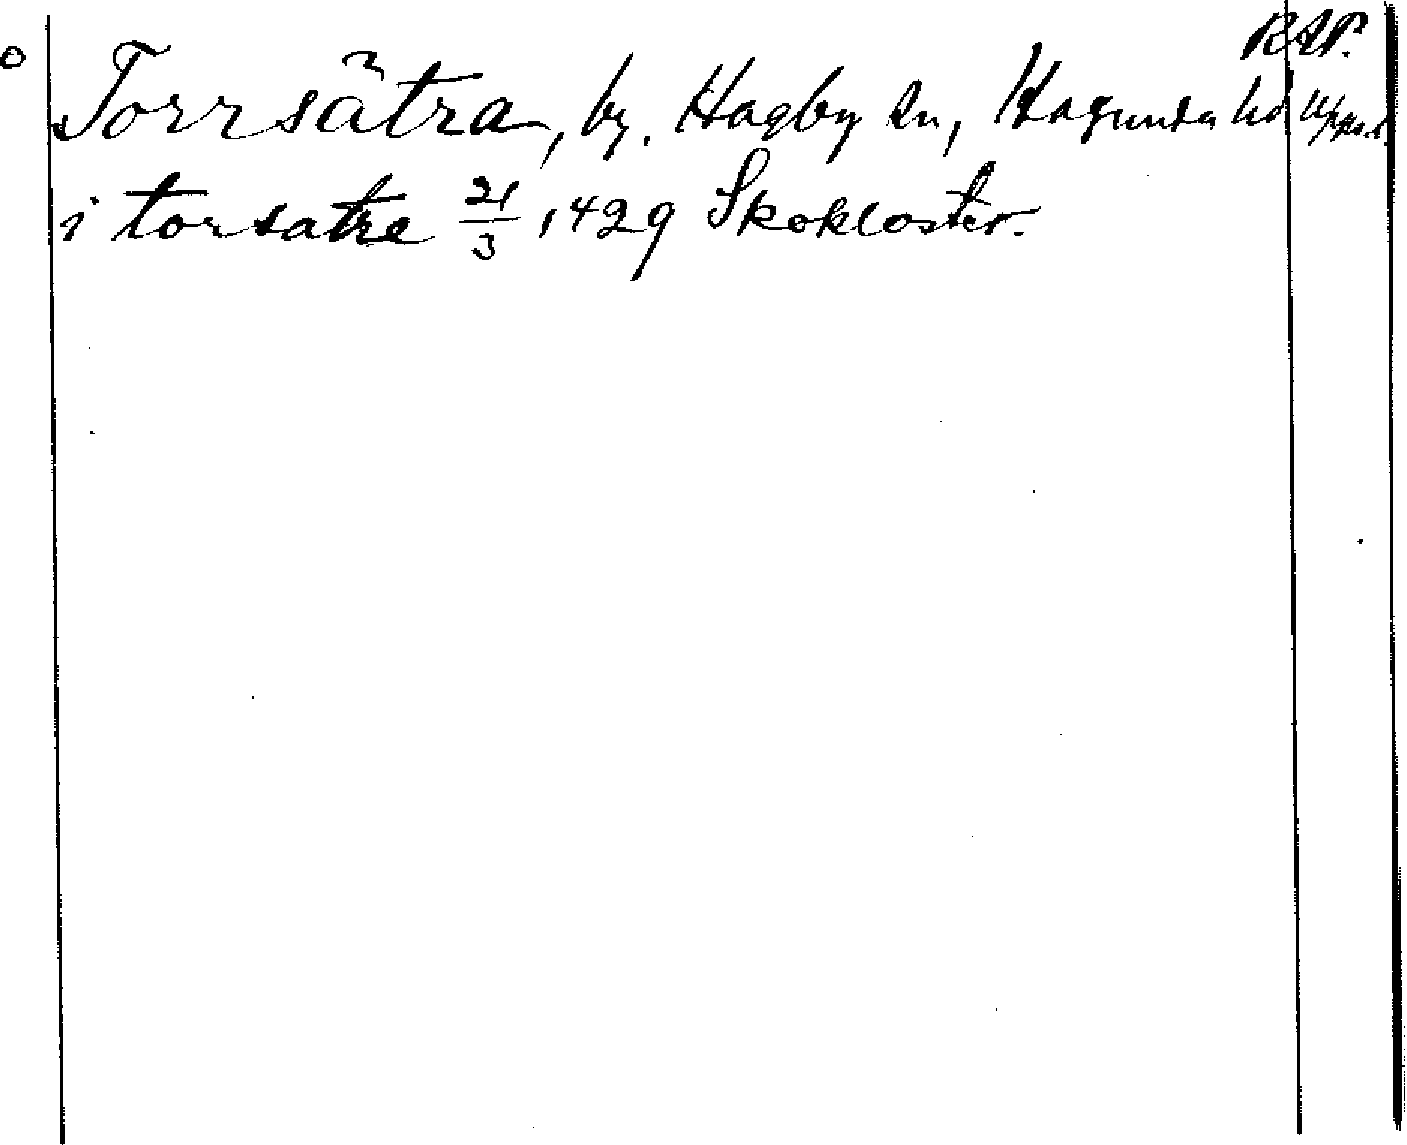 RAP.
Torrsätra, by. Hagby sn, Hagunda hd Upps.l.
i torsatre 21/3 1429 Skokloster.